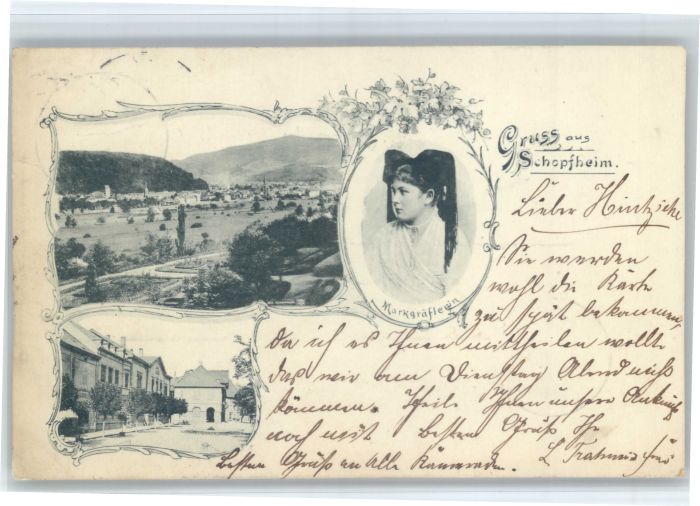 Gruss aus
Schopfheim.
Markgräflerin
Lieber Hintzsche
Sie werden
wohl die Karte
zu spät bekommen,
da ich es Ihnen mittheilen wollte
das wir am Dienstag Abend nicht
kommen. Theile Ihnen unsere Ankunft
noch mit besten Gruß Ihr
L
besten Gruß an Alle Kameraden.